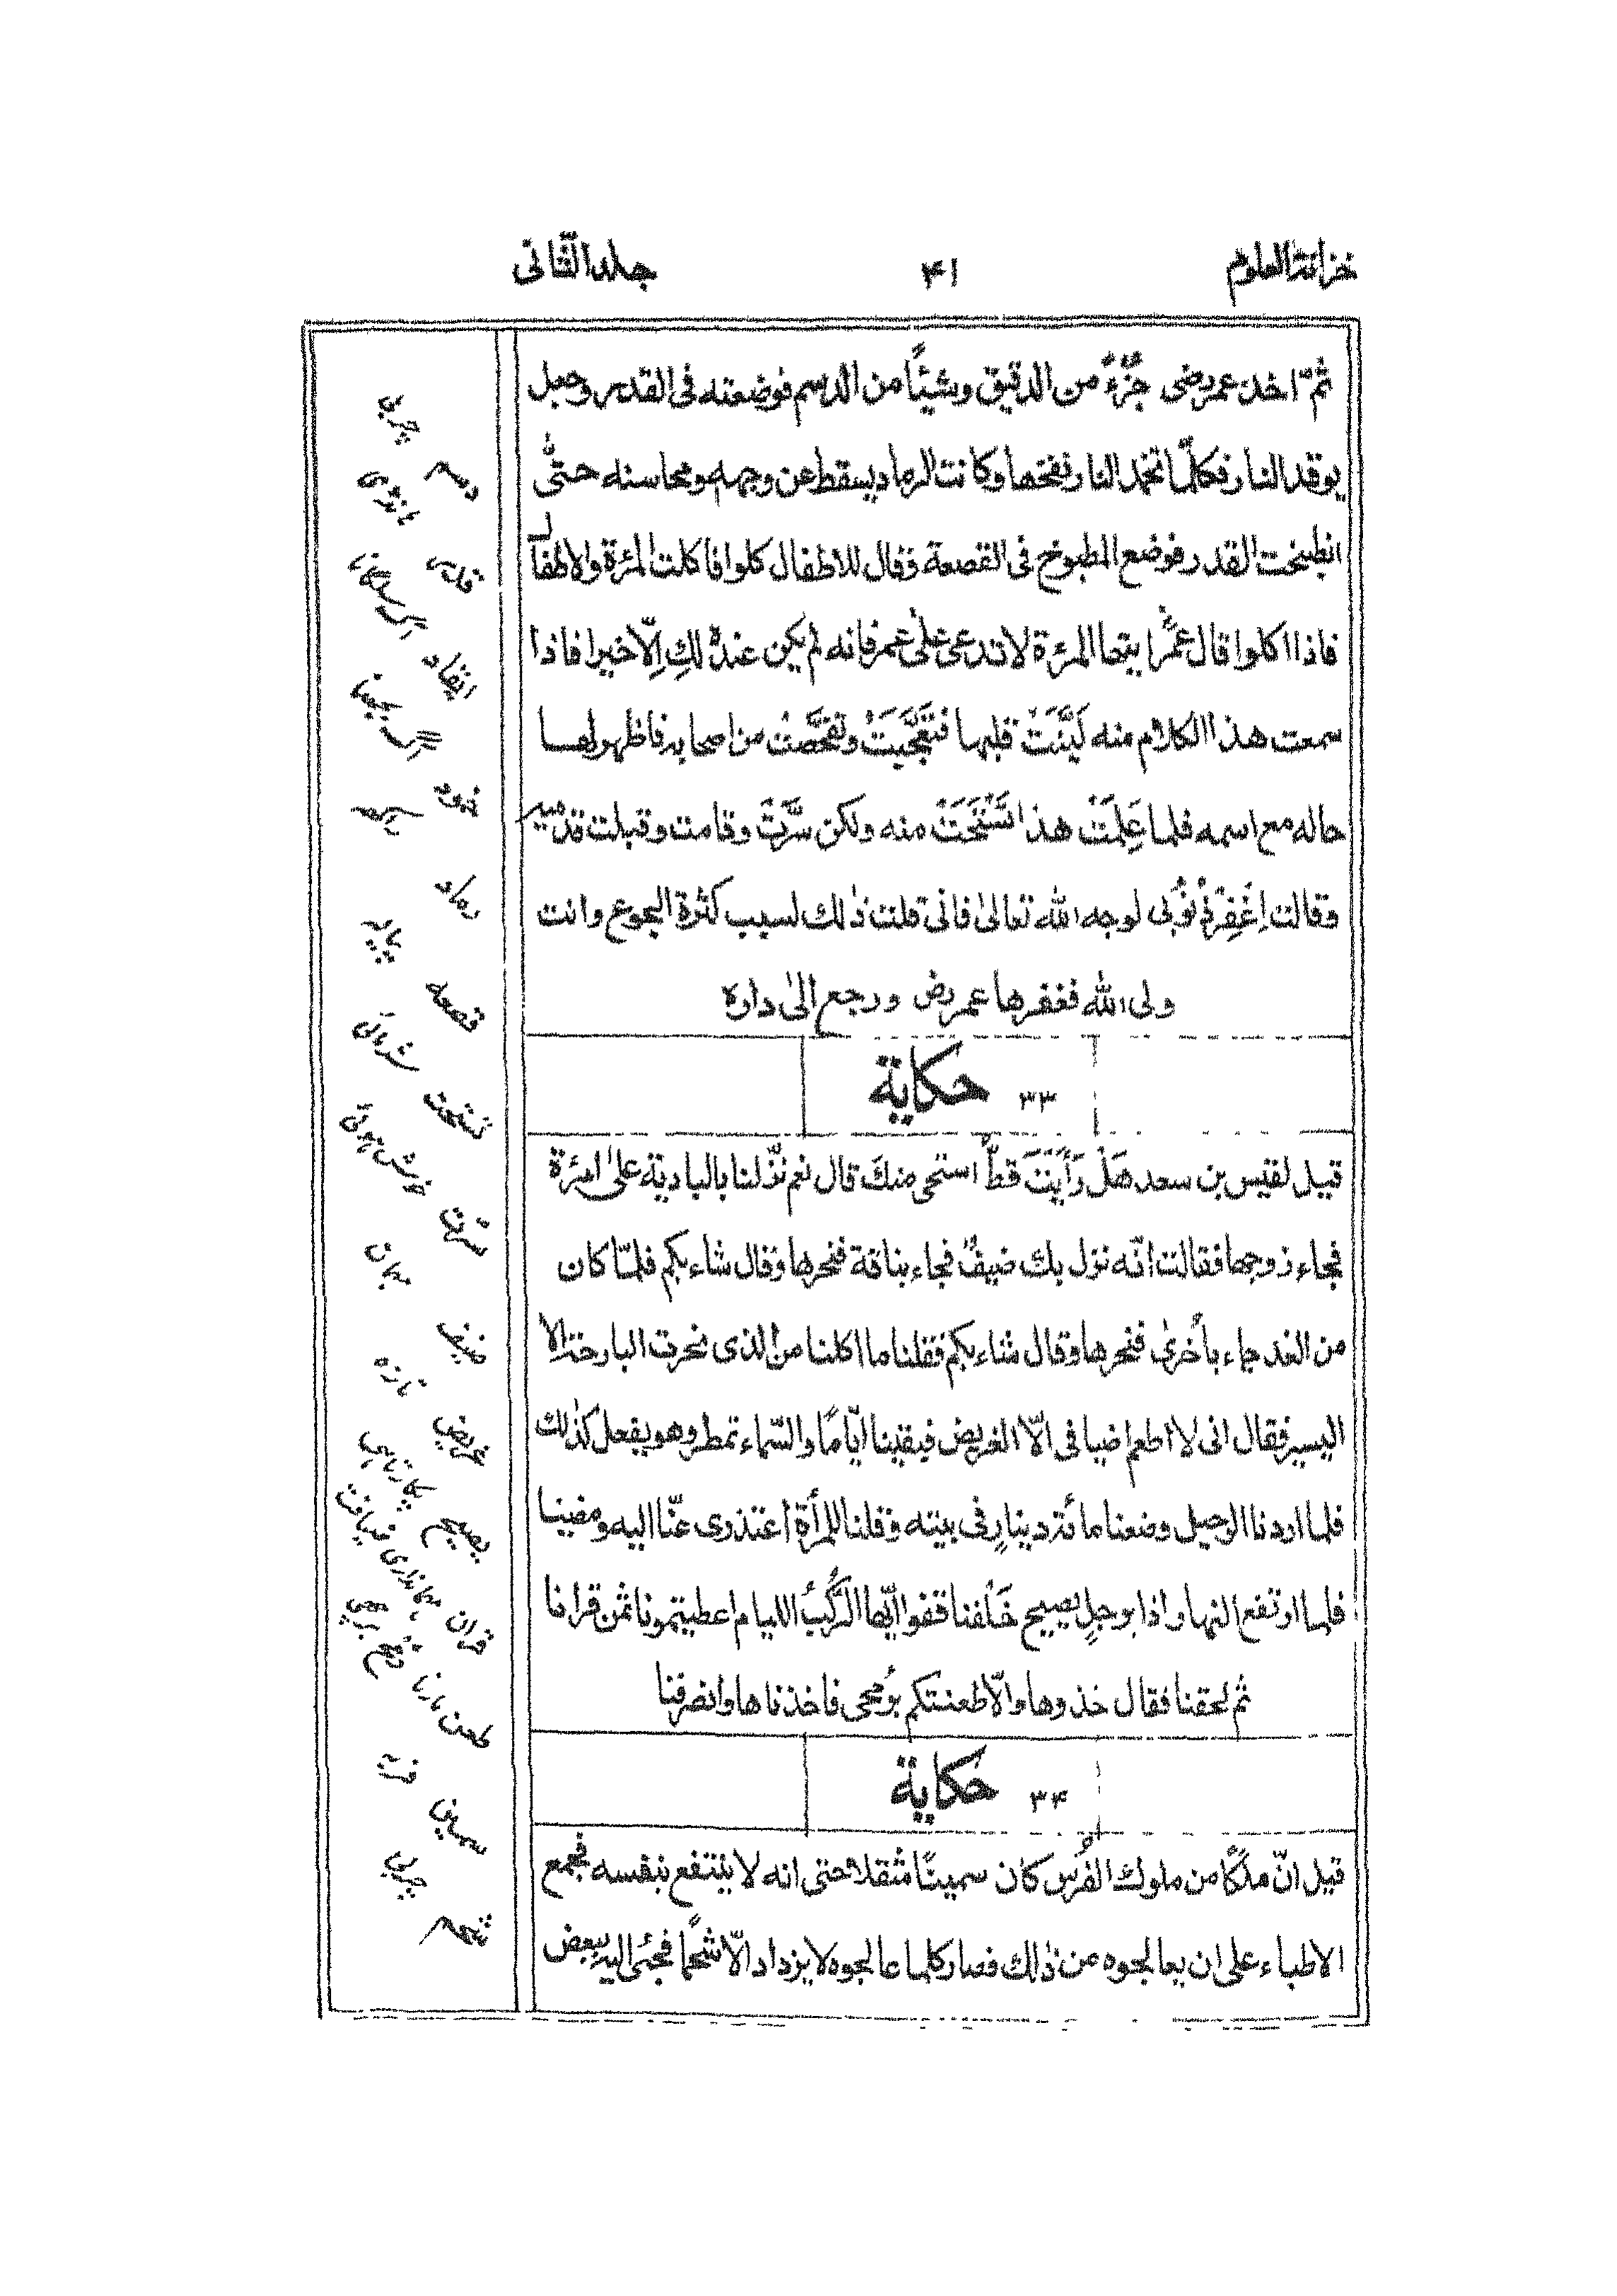 خزانة العلوم
۴۱
جلد الثانی
ثمّ اخذ عمر رضی جُزْءً من الدقیق وشیئًا من الدسم فوضعته فی القدر وجعل
یوقد النار فکلّما تخمد النار نفخها وکانت الرماد یسقط عن وجهه ومحاسنه حتّٰی
انطبخت القدر فوضع المطبوخ فی القصعة وقال للاطفال کلوا فاکلت المرٔة والاطفال
فاذا اکلوا قال عمرُ ایتها المرٔة لا تدعی علٰی عمر فانه لم یکن عندهٗ لكِ اِلّا خیرا فاذا
سمعت هذا الکلام منه لَیَّنَتْ قلبها فتَعَجَّبَتْ وتفحَّصت من اصحابه فاظهر لها
حاله مع اسمه فلما عَلِمَتْ هذا اسْتَحَتْ منه ولکن سَرَّتْ وقامت وقبلت قدمیه
وقالت اِغْفِرْ ذُنُوْبِی لوجه الله تعالیٰ فانی قلت ذٰلك لسبب کثرة الجوع وانت
ولی الله فغفرها عمر رض ورجع الیٰ داره
۳۳ حکایة
قیل لقیس بن سعد هَلْ رَأَیْتَ قطُّ استحی منكَ قال نعم نزّلنا بالبادیة علیٰ امرٔة
فجاء زوجها فقالت انّه نزل بك ضیفٌ فجاء بناقة فنحرها وقال شاء بکم فلمّا کان
من الغد جاء باُخریٰ فنحرها وقال شاء بکم فقلنا ما اکلنا من الذی نحرت البارحة الا
الیسیر فقال انی لا اطعم اضیافی الّا الغریض فبقینا ایّامًا والسّماء تمطر وهو یفعل کذٰلك
فلما اردنا الرحیل وضعنا مائة دینارٍ فی بیته وقلنا للمرأة اعتذری عنّا الیه ومضینا
فلما ارتفع النهار اذا برجلٍ یصیح خَلْفنا قفوا ایّها الرَّکْبُ اللیام اعطیتمونا ثمن قرانا
ثم لحقنا فقال خذوها والّا طعنتکم برُمحی فاخذناها وانصرفنا
۳۴ حکایة
قیل انّ ملکًا من ملوك الفُرْس کان سمینًا مثقلا حتی انه لا ینتفع بنفسه فجمع
الاطباء علی ان یعالجوه من ذٰلك فصار کلما عالجوه لا یزداد الّا شحمًا فجئی الیه ببعض
دسم چربی
قدر ہانڈی
ایقاد آگ سلگانا
خمود آگ بجھنا
رماد
قصعه پیالہ
سرّت خوش ہوئی
ضیف مہمان
غریض تازہ
یصیح پکارتا ہے
قران مہمانداری ضیافت
طعن مارنا
سمین فربہ
شحم چربی